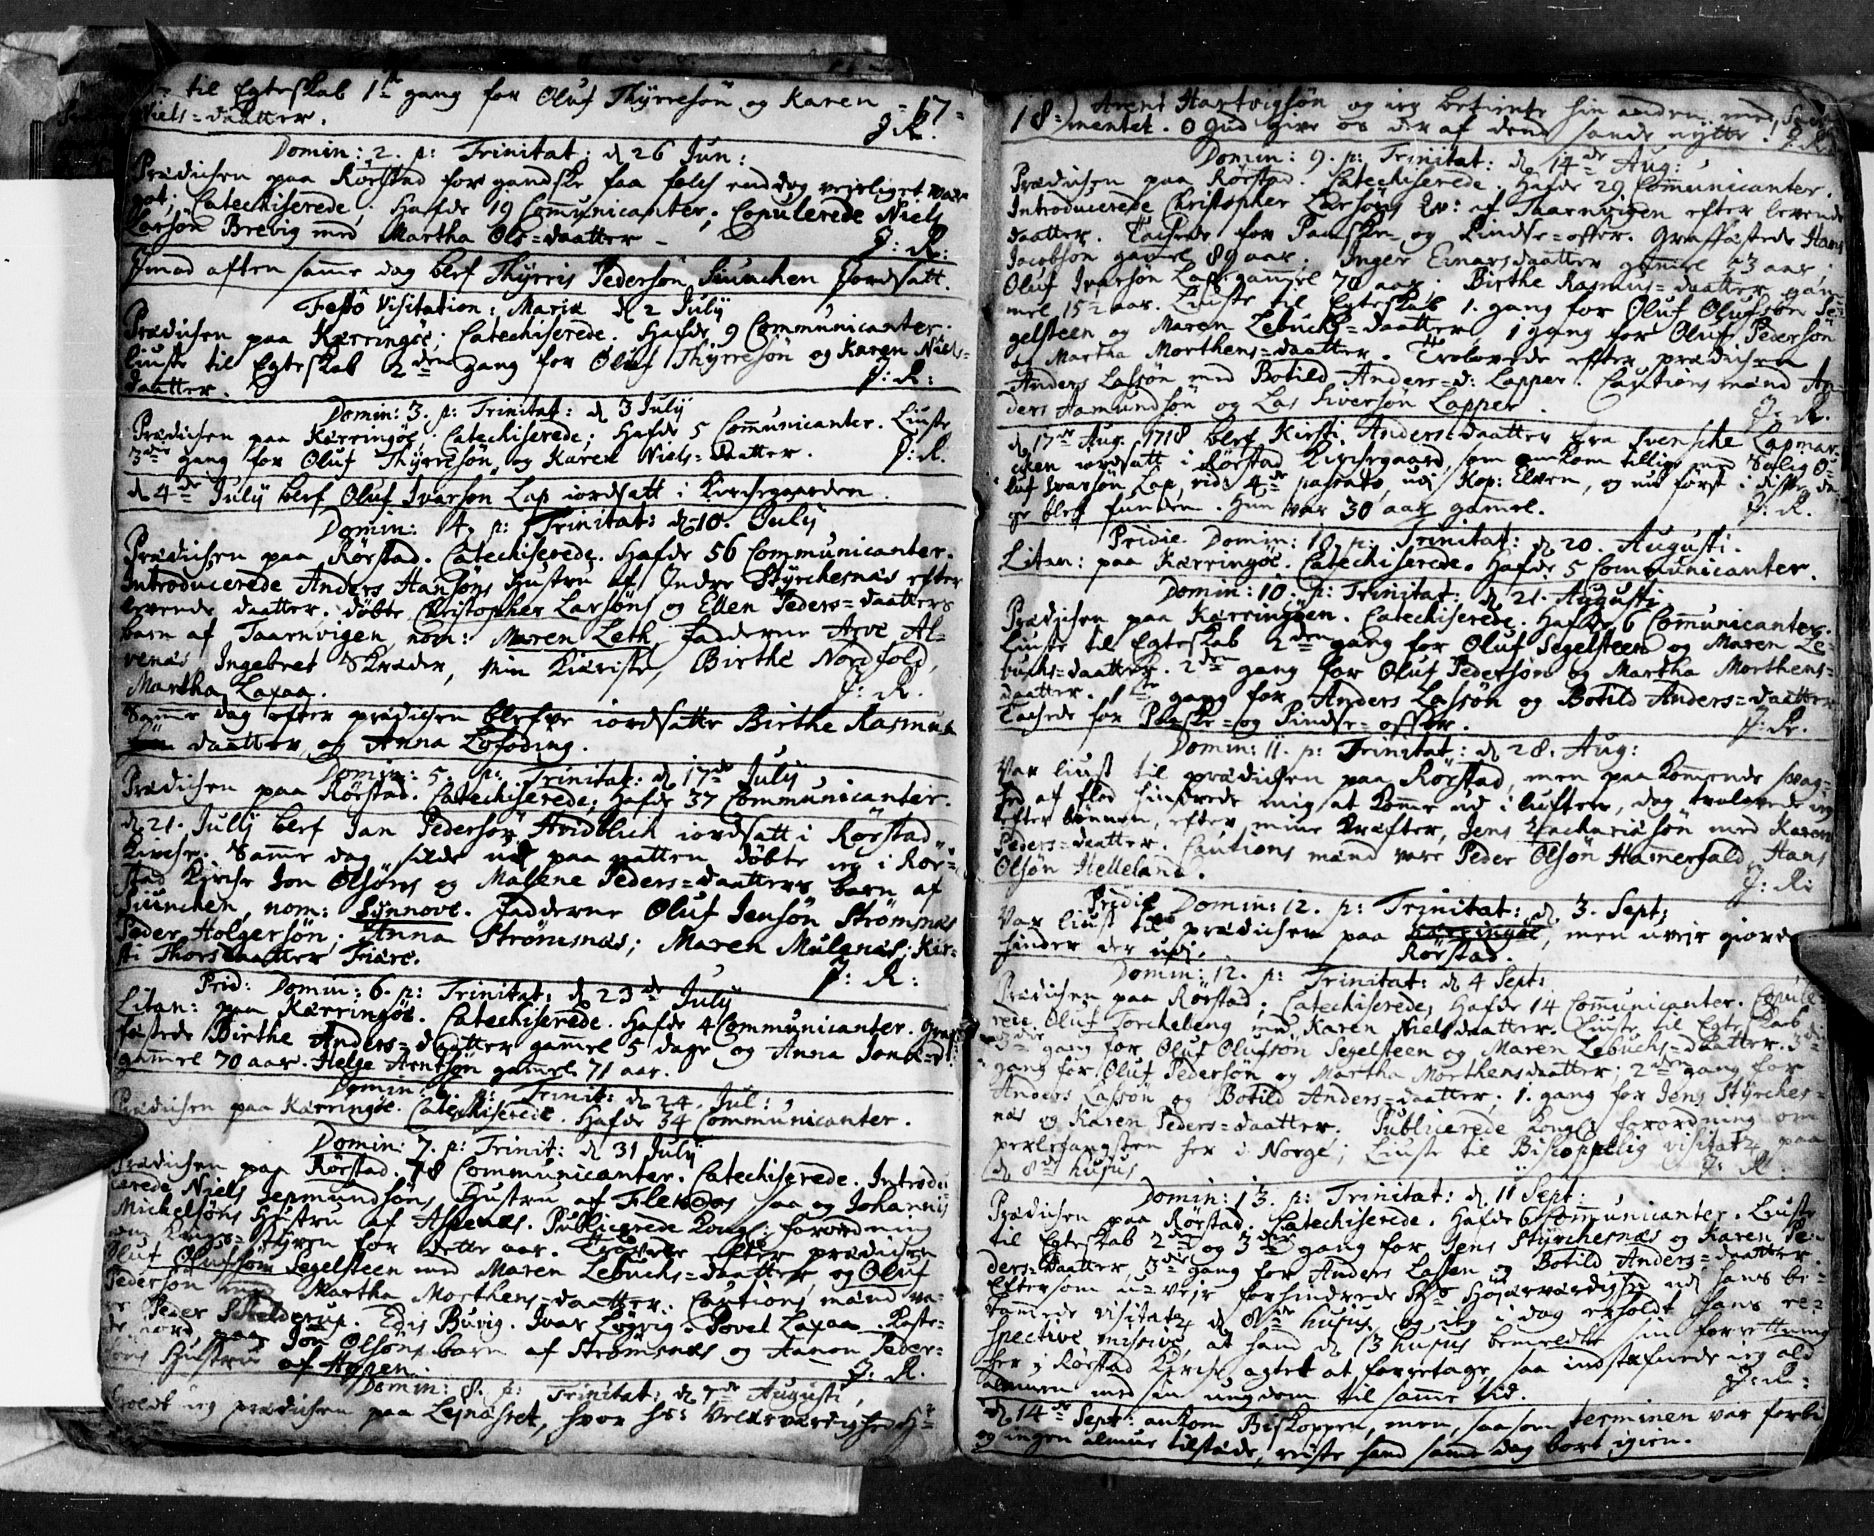 til Egteskab 1ste gang for Oluf Thyrresön og Karen = 17 =
Niels=daatter. J: R:
Domin: 2. p: Trinitat: d 26 Jun:
Prædichen paa Rörstad for gandske faa folch enddog vejrliget war
got; Catechiserede. Hafde 19 Communicanter; Copulerede Niels
Larsön Brevig med Martha Ols=daatter – J: R:
Imod aften samme dag blef Thyrris Pedersön Siunchen Jordsatt.
Festo Visitation: Mariæ d 2 July
Prædichen paa Kærringöe; Catechiserede. Hafde 9 Communicanter.
liuste til Egteskab 2den gang for Oluf Thyrresön og Karen Niels=
daatter. J: R:
Domin: 3. p: Trinitat: d 3 July
Prædichen paa Kærringöe; Catechiserede; Hafde 5 Communicanter. Liuste
3die gang for Oluf Thyrresön og Karen Niels=daatter. J: R.
d 4de July blef Oluf Ivarsön Lap iordsatt i Kirchegaarden.
Domin: 4. p: Trinitat: d 10. July
Prædichen paa Rörstad. Catechiserede. Hafde 56 Communicanter.
Introducerede Anders Hansöns Hustru af Indre Styrchesnæs efter
levende daatter. döbte Christopher Larsöns og Ellen Peders=daatters
barn af Taarnvigen, nom: Maren Leth, Fadderne Arve Al=
venæs, Ingebret Skræder, Min Kiæriste, Birthe Nordfold,
Martha Laxaa. J: R.
Samme dag efter prædichen blefve iordsatte Birthe Rasmus
daatter, og Anna Lofoding.
Domin: 5. p: Trinitat: d 17de July
Prædichen paa Rörstad. Catechiserede; Hafde 37 Communicanter.
d 21. July blef Jan Pedersön Hvidblich iordsatt i Rörstad
Kirche. Samme dag silde ud paa natten döbte ieg i Rör=
stad Kirche Jon Olsöns og Malene Peders=daatters barn af
Siunchen, nom: Synnove. Fadderne Oluf Jensön Strömsnæs
Peder Holgersön; Anna Strömsnæs; Maren Mulenæs; Kir=
sti Thorsdaatter Fiære. J: R:
Prid: Domin: 6. p: Trinitat: d 23de July
Litan: paa Kærringöe. Catechiserede. Hafde 4 Communicanter. Graf=
fæstede Birthe Anders=daatter gammel 5 dage og Anna Jons=d:
gammel 70 aar. Helge Arntsön gammel 71 aar.
Domin: 6. p: Trinit: d 24. Jul:
Prædichen paa Kærringöe. Catechiserede. Hafde 34 Communicanter.
Domin: 7. p: Trinit: d 31 July
Prædichen paa Rörstad. 78 Communicanter. Catechiserede. Introdu=
cerede Niels Jermundsöns Hustru af saa og Johannis
Michelsöns Hustru af Aspenes. Publicerede Kongl: forordning
om Krigs=Styren for dette aar. Trolovede efter prædichen
Oluf Olufsön Segelsteen med Maren Lebuchs=daatter og Oluf
Pedersön med Martha Morthens=daatter. Cautions mænd va=
re Peder Schelderup. Edis Buvig. Ivar Logvig. Povel Laxaa. Kaste=
de iord paa Jon Olsöns barn af Strömsnæs og Aamon Peder=
söns Hustru af Aspen. J: R.
Domin: 8. p: Trinitat: d 7de Augusti,
holdt ieg prædichen paa Lejnæsret, hvor hs: Velærværdighed Hr
18=) Arent Hartvigsön og ieg betiente hin anden med Sacra=
mentet. O Gud give os der af dend sande nytte! J: R:
Domin: 9. p: Trinitat: d 14de Aug:
Prædichen paa Rörstad. Catechiserede. Hafde 29 Communicanter.
Introducerede Christopher Larsöns Qv: af Taarnvigen efter levende
daatter. Tachede for Paaske= og Pindse=offer. Graffæstede Hans
Jacobsön gamel 89 aar. Inger Einersdaatter gammel 23 aar.
Oluf Ivarsön Lap gammel 70 aar. Birthe Rasmus=daatter gam=
mel 15½ aar. Liuste til Egteskab 1. gang for Oluf Olufsön Se=
gelsteen og Maren Lebuchs=daatter, 1 gang for Oluf Pedersön
og Martha Morthens=daatter. Trolovede efter prædichen
Anders Lassön med Botild Anders=d: Lapper. Cautions mænd An=
ders Aamundsön og Las Siversön Lapper. J: R.
d 17de Aug. 1718 blef Kirsti Anders=daatter fra Svenske Lapmar=
chen iordsatt i Rörstad Kirchegaard, som omkom tillige med Salig O=
luf Ivarsön Lap, vide 4de passato, udi Kop: Elven, og nu först i disse da=
ge blef funden. Hun var 30 aar gamel. J: R.
Pridie Domin: 10. p: Trinitat: d 20. Augusti.
Litan: paa Kærringöe. Catechiserede. Hafde 5 Communicanter.
Domin: 10. p: Trinitat: d 21. Augusti
Prædichen paa Kærringöen. Catechiserede. Hafde 6 Communicanter.
Liuste til Egteskab 2den gang for Oluf Segelsteen og Maren Le=
buchs=daatter. 2den gang for Oluf Pedersön og Martha Morthens=
daatter. 1ste gang for Anders Lassön og Botild Anders=daatter
Tachede for Paaske=og Pindse=offer. J: R.
Domin: 11. p: Trinitat: d 28. Aug:
Var liust til prædichen paa Rörstad, men paa kommende svag=
hed af flod hindrede mig at komme ud i luften, dog trolovede ieg
efter bönnen, efter mine kræfter, Jens Zachariæsön med Karen
Peders=daatter. Cautions mænd vare Peder Olsön Hamerfald, Hans
Olsön Helleland. J: R:
Pridie Domin: 12. p: Trinitat: d. 3. Sept:
Var liust til prædichen paa Kærringöe, men uvejr giorde
hinder der udi. Rörstad.
Domin: 12. p: Trinitat: d 4 Sept:
Prædichen paa Rörstad; Catechiserede; Hafde 14 Communicanter. Copule=
rede Oluf Torchelseng med Karen Nielsdaatter. Liuste til Egteskab
3die gang for Oluf Olufsön Segelsteen og Maren Lebuchs=daatter. 3die
gang for Oluf Pedersön og Martha Morthensdaatter; 2den gang for
Anders Lassön og Botild Anders=daatter; 1. gang for Jens Styrches=
næs og Karen Peders=daatter. Publicerede Kongl: forordning om
perlefangsten her i Norge; Liuste til Biskoppelig visitatz paa
d 8de hujus J: R:
Domin: 13. p: Trinitat: d. 11 Sept:
Prædichen paa Rörstad. Catechiserede. Hafde 6 Communicanter. Liuste
til Egteskab 2den og 3die gang for Jens Styrchesnæs og Karen Pe=
ders=daatter, 3die gang for Anders Lassen og Botild Anders=daatter.
Eftersom u=vejr forhindrede Höjærværdighed ud hans be=
rammede visitatz d 8de hujus, og ieg i dag erholdt hans re=
spective missive, at hand d 13 hujus bemeldte sin forretning
her i Rörstad Kirche agtet at foretage, saa indstefnede ieg ald
almuen med sin ungdom til samme tid. J: R:
d 14de Sept: ankom Biskoppen, men, saasom terminen var forbi
og ingen almue tilstæde, reiste hand samme dag bort igien.